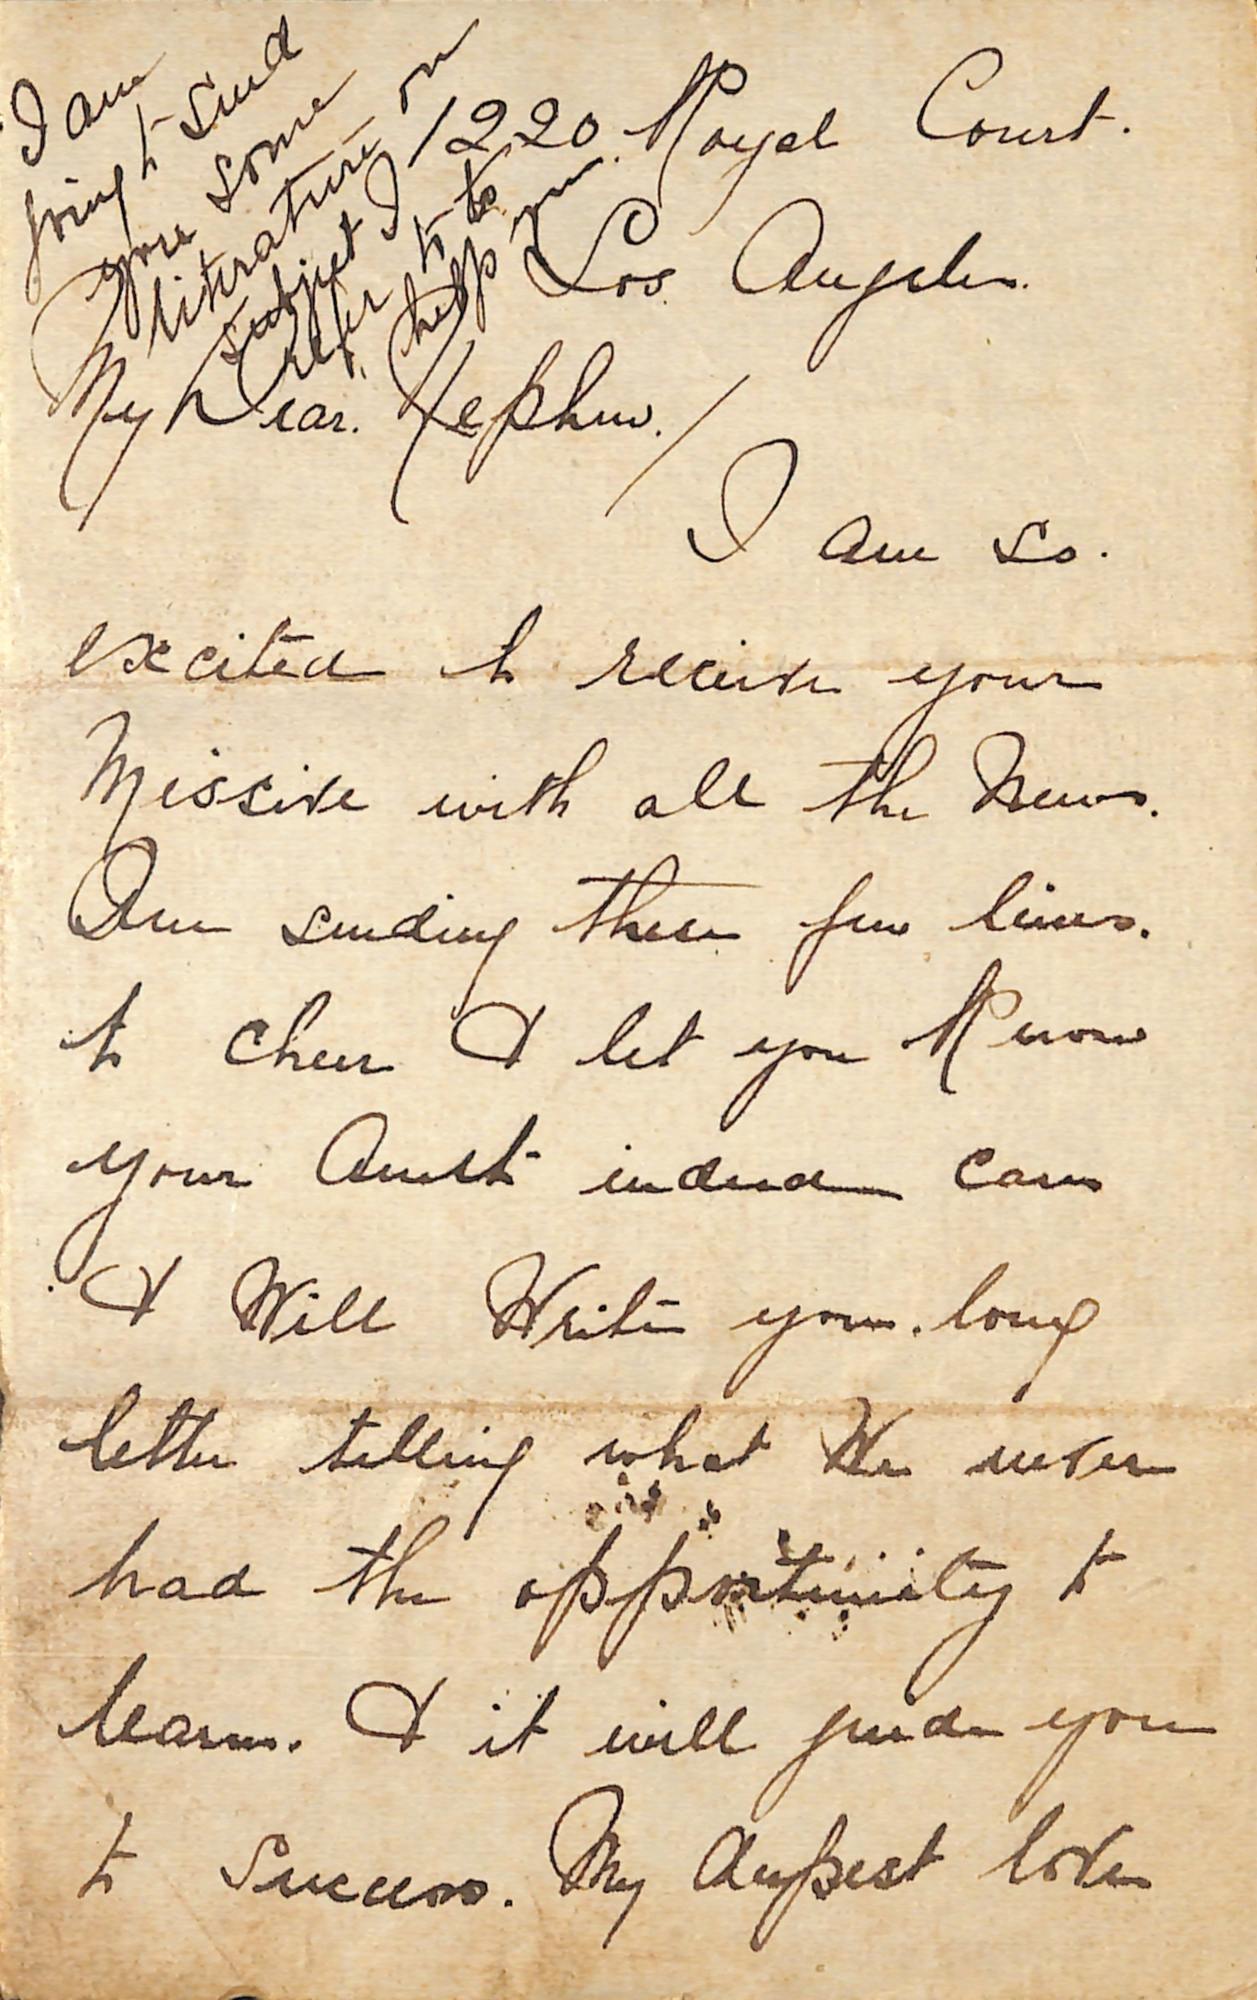 I am
going to send
you some
literature on
subject I
refer to to
help you.
1220. Royal Court.
Los Angeles.
My Dear. Nephew./
I am so.
excited to receive your
Missive with all the News.
Am sending these few lines.
to cheer & let you Know
your Aunt indeed cares
& Will Write you. long
letter telling what We never
had the opportunity to
learn. & it will guide you
to Success. My deepest love